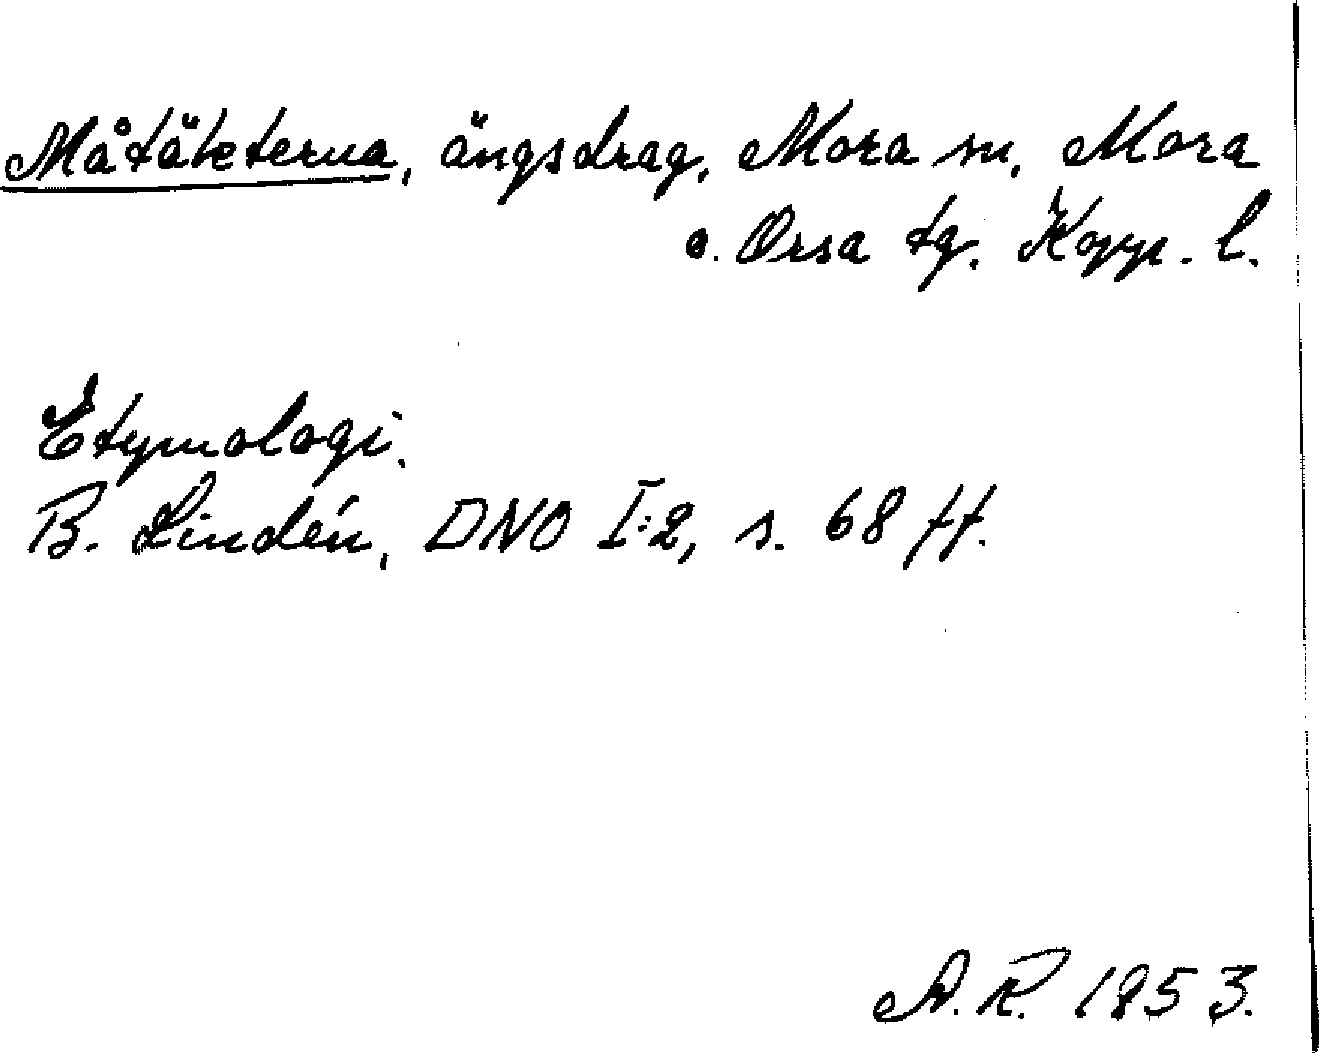 Måtäkterna, ängsdrag, Mora sn, Mora
o. Orsa tg. Kopp. l.
Etymologi.
B. Lindén, DNO I:2, s. 68 ff.
A.R. 1853.